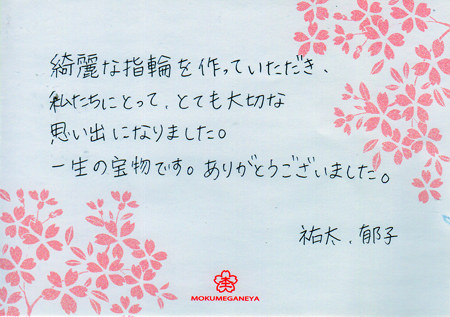 綺麗な指輪を作っていただき、
私たちにとって、とても大切な
思い出になりました。
一生の宝物です。ありがとうございました。
祐太、郁子
MOKUMEGANEYA